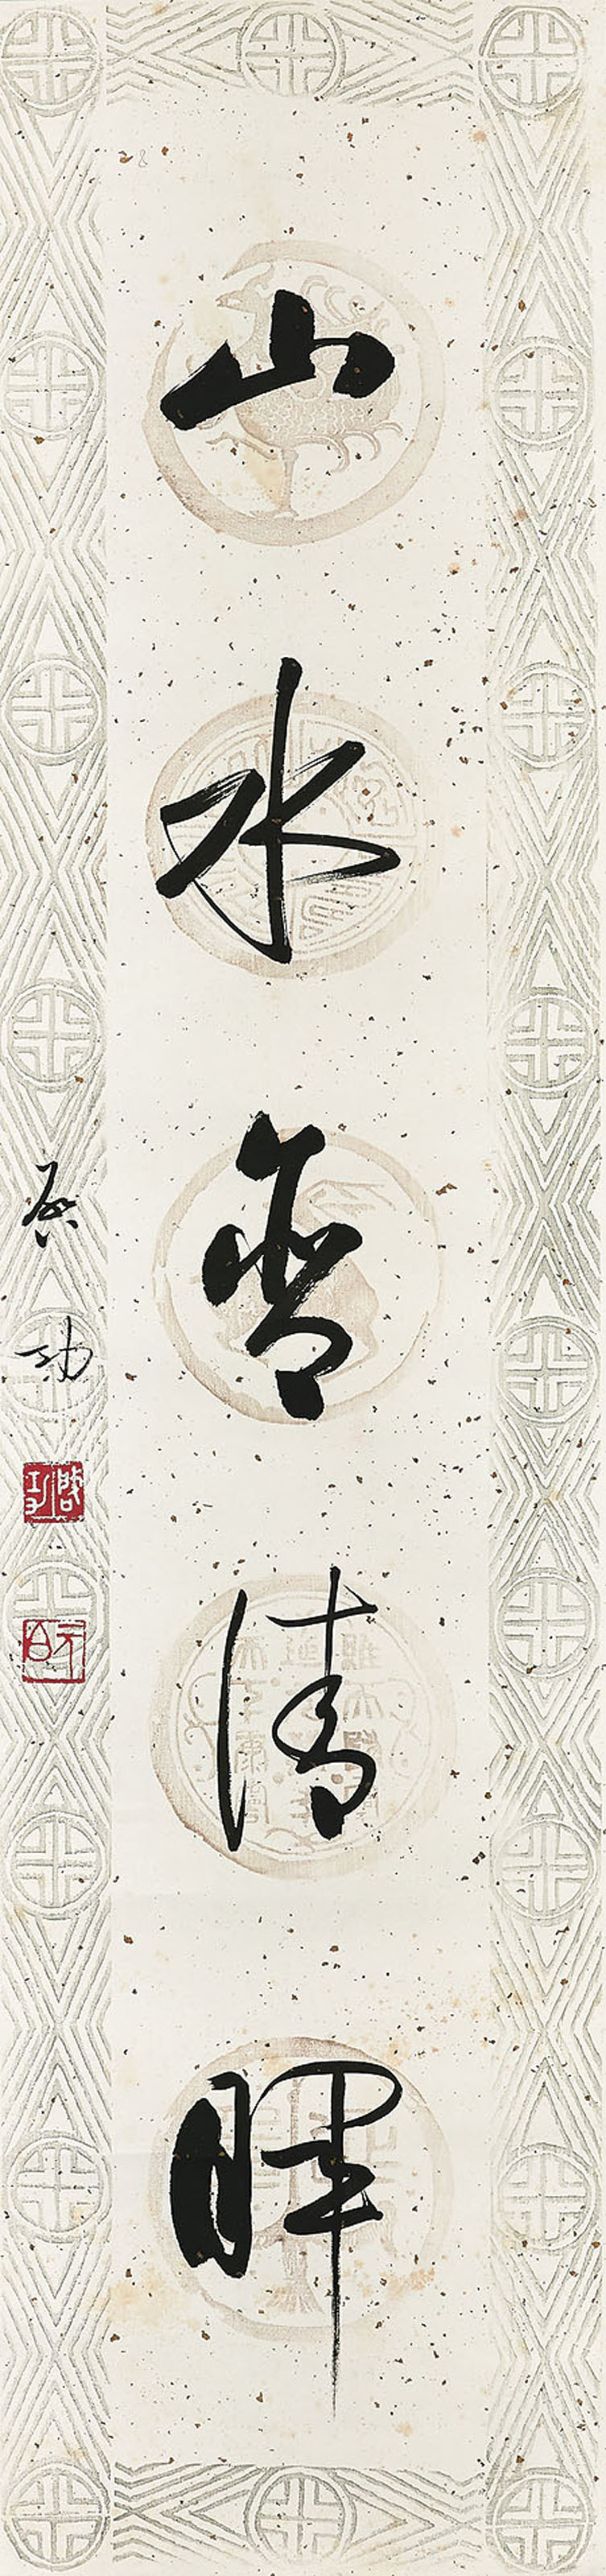 山水含清暉
启功
启功
元白